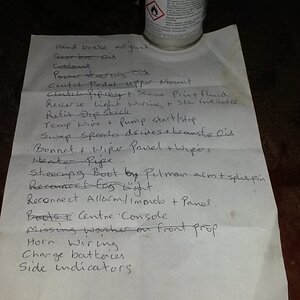 Hand brake adjust
Gear box Oil
Coolant
Power steering Oil
Centre Pedal Upper Mount
Clutch Piping + Stone Pin + Fluid
Reverse Light Wiring + Side indicator
Refit Dip Stick
Temp Wire + Pump start/stop
Swap speedo drives + transfer Oil
Bonnet + Wiper Panel + Wipers
Heater Pipe
Steering Boot by Pitman arm + split pin
Reconnect Fog Light
Reconnect Allarm/Immob + Panel
Boots + Centre Console
Missing washer on front prop
Horn Wiring
Charge batteries
Side indicators